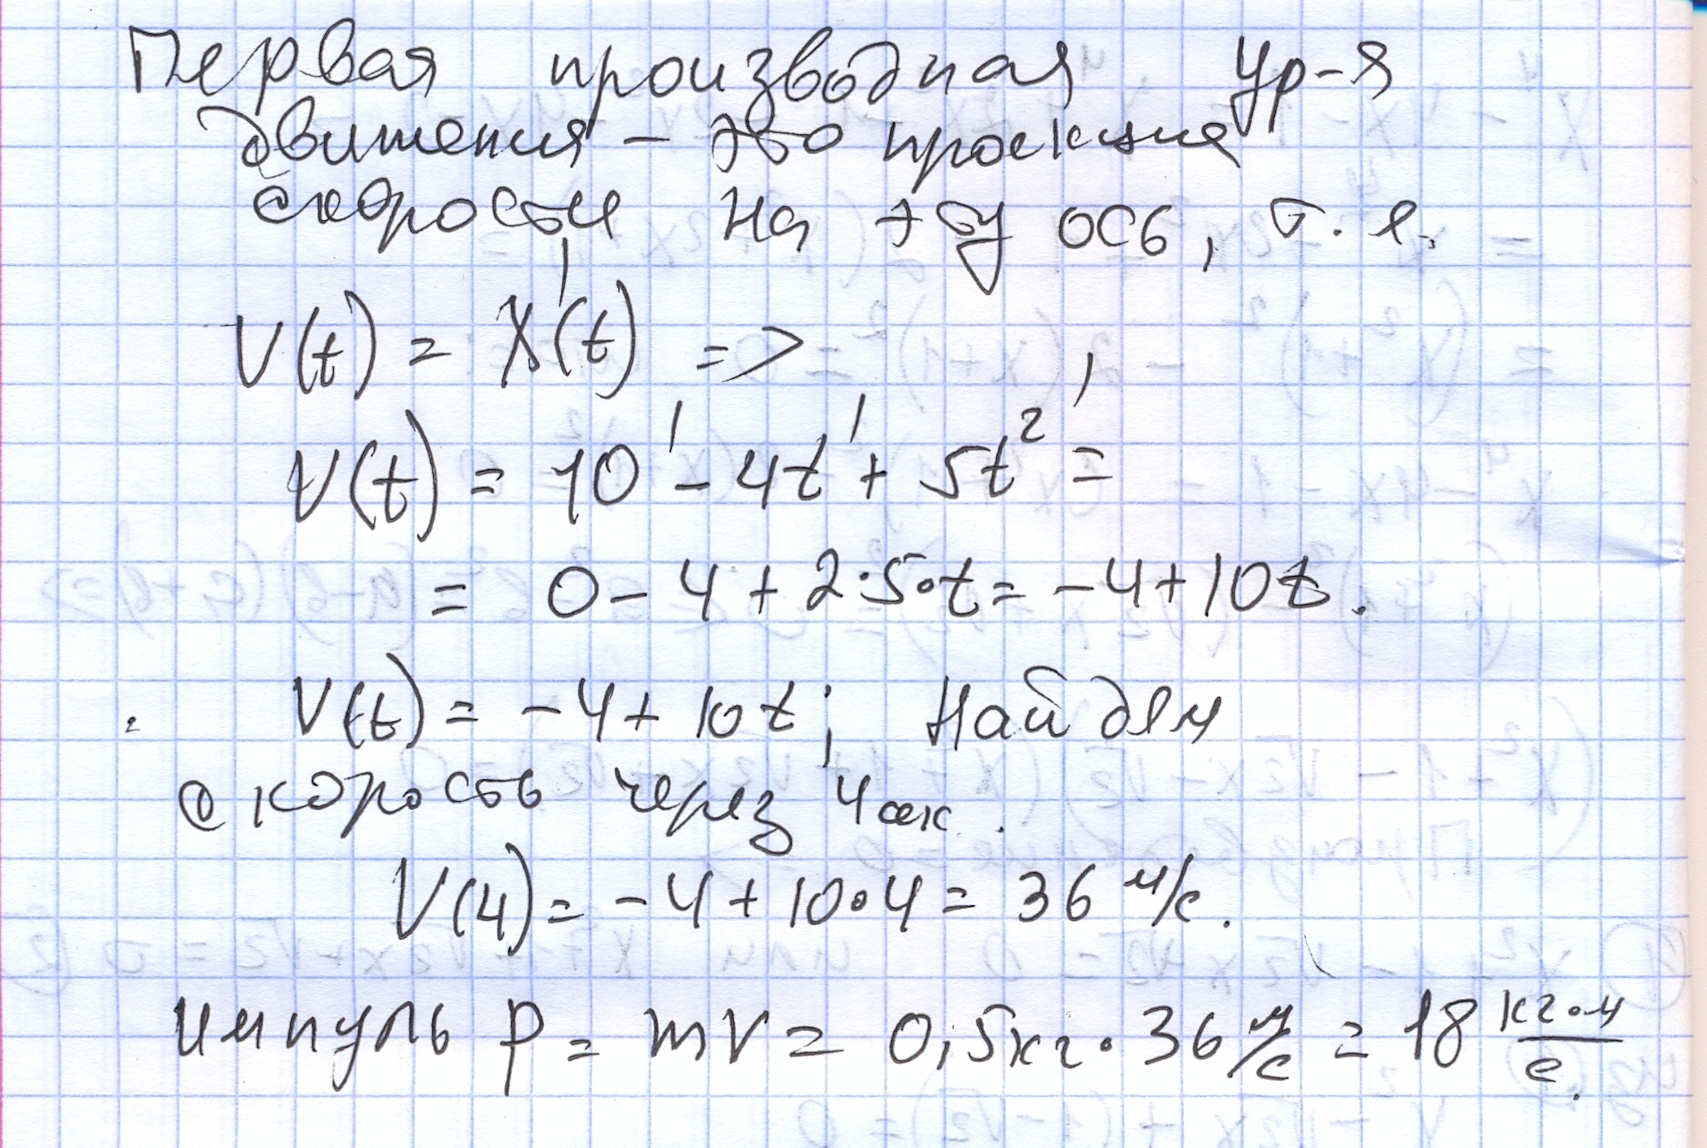 Первая производная ур-я
движения – это проекция
скорости на эту ось, т. е.
V(t) = X'(t) =>
V(t) = 10' - 4t' + 5t²' =
= 0 - 4 + 2·5·t = -4 + 10t.
V(t) = -4 + 10t; Найдем
скорость через 4 сек.
V(4) = -4 + 10·4 = 36 м/с.
Импуль p = mV = 0,5кг · 36 м/с = 18 кг·м/с.